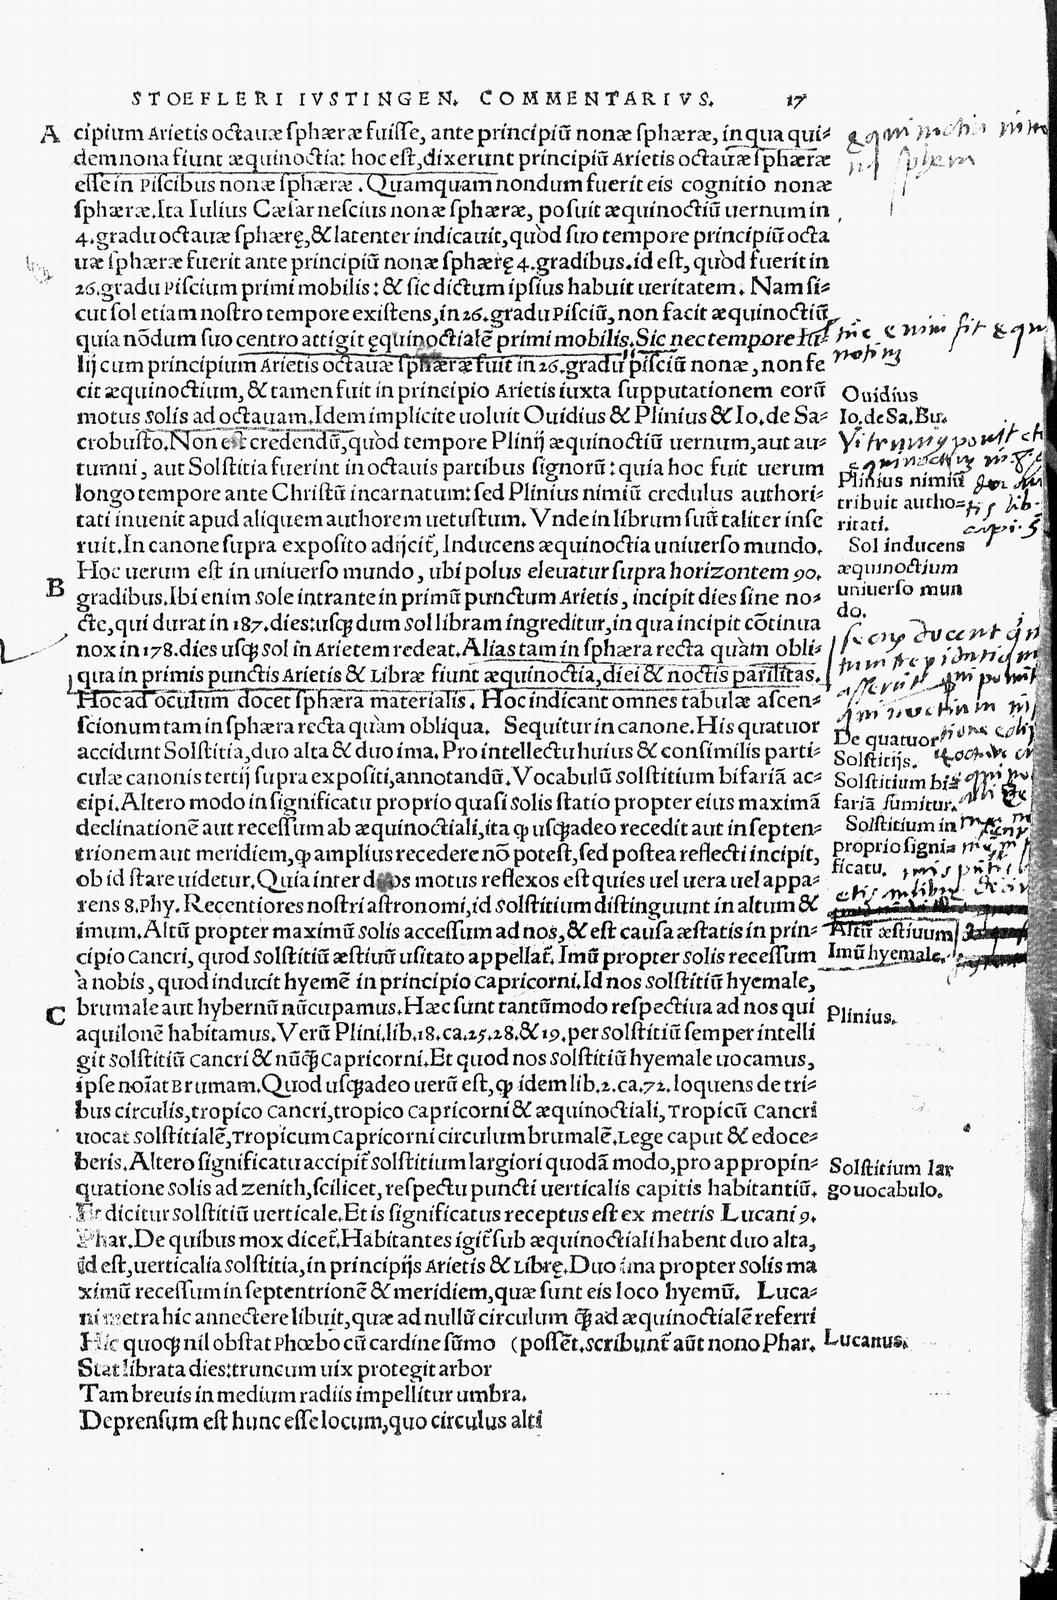 STOEFLERI IVSTINGEN. COMMENTARIVS. 17
A cipium Arietis octauæ sphæræ fuisse, ante principiũ nonæ sphæræ, in qua qui-
dem nona fiunt æquinoctia: hoc est, dixerunt principiũ Arietis octauæ sphæræ
esse in Piscibus nonæ sphæræ. Quamquam nondum fuerit eis cognitio nonæ
sphæræ. Ita Iulius Cæsar nescius nonæ sphæræ, posuit æquinoctiũ uernum in
4. gradu octauæ sphærę, & latenter indicauit, quòd suo tempore principiũ octa
uæ sphæræ fuerit ante principiũ nonæ sphærę 4. gradibus. id est, quòd fuerit in
26. gradu Piscium primi mobilis: & sic dictum ipsius habuit ueritatem. Nam si-
cut sol etiam nostro tempore existens, in 26. gradu Pisciũ, non facit æquinoctiũ,
quia nõdum suo centro attigit ęquinoctialẽ primi mobilis. Sic nec tempore Iu-
lij cum principium Arietis octauæ sphæræ fuit in 26. gradu pisciũ nonæ, non fe
cit æquinoctium, & tamen fuit in principio Arietis iuxta supputationem eorũ
motus solis ad octauam. Idem implicite uoluit Ouidius & Plinius & Io. de Sa-
crobusto. Non est credendũ, quòd tempore Plinij æquinoctiũ uernum, aut au-
tumni, aut Solstitia fuerint in octauis partibus signorũ: quia hoc fuit uerum
longo tempore ante Christũ incarnatum: sed Plinius nimiũ credulus authori-
tati inuenit apud aliquem authorem uetustum. Vnde in librum suũ taliter inse
ruit. In canone supra exposito adijcit̃, Inducens æquinoctia uniuerso mundo.
Hoc uerum est in uniuerso mundo, ubi polus eleuatur supra horizontem 90.
B gradibus. Ibi enim Sole intrante in primũ punctum Arietis, incipit dies sine no-
cte, qui durat in 187. dies: usq̃ dum sol libram ingreditur, in qua incipit cõtinua
nox in 178. dies usq̃ Sol in Arietem redeat. Alias tam in sphæra recta quàm obli-
qua in primis punctis Arietis & Libræ fiunt æquinoctia, diei & noctis parilitas.
Hoc ad oculum docet sphæra materialis. Hoc indicant omnes tabulæ ascen-
scionum tam in sphæra recta quàm obliqua. Sequitur in canone. His quatuor
accidunt Solstitia, duo alta & duo ima. Pro intellectu huius & consimilis parti-
culæ canonis tertij supra expositi, annotandũ. Vocabulũ solstitium bifariã ac-
cipi. Altero modo in significatu proprio quasi solis statio propter eius maximã
declinationẽ aut recessum ab æquinoctiali, ita ꝙ usq̃adeo recedit aut in septen-
trionem aut meridiem, ꝙ amplius recedere nõ potest, sed postea reflecti incipit,
ob id stare uidetur. Quia inter duos motus reflexos est quies uel uera uel appa-
rens 8. Phy. Recentiores nostri astronomi, id solstitium distinguunt in altum &
imum. Altũ propter maximũ solis accessum ad nos, & est causa æstatis in prin-
cipio Cancri, quod solstitiũ æstiuũ usitato appellat̃. Imũ propter solis recessum
à nobis, quod inducit hyemẽ in principio capricorni. Id nos solstitiũ hyemale,
C brumale aut hybernũ nũcupamus. Hæc sunt tantũmodo respectiua ad nos qui
aquilonẽ habitamus. Verũ Plini. lib. 18. ca. 25. 28. & 19. per solstitiũ semper intelli
git solstitiũ cancri & nũq̃ Capricorni. Et quod nos solstitiũ hyemale uocamus,
ipse noĩat Brumam. Quod usq̃adeo uerũ est, ꝙ idem lib. 2. ca. 72. loquens de tri-
bus circulis, tropico Cancri, tropico Capricorni & æquinoctiali, Tropicũ Cancri
uocat solstitialẽ, Tropicum Capricorni circulum brumalẽ. Lege caput & edoce-
beris. Altero significatu accipit̃ solstitium largiori quodã modo, pro appropin-
quatione solis ad zenith, scilicet, respectu puncti uerticalis capitis habitantiũ.
Et dicitur solstitiũ uerticale. Et is significatus receptus est ex metris Lucani 9.
Phar. De quibus mox dicet̃. Habitantes igit̃ sub æquinoctiali habent duo alta,
id est, uerticalia solstitia, in principijs Arietis & Librę. Duo ima propter solis ma
ximũ recessum in septentrionẽ & meridiem, quæ sunt eis loco hyemũ. Luca-
ni metra hic annectere libuit, quæ ad nullũ circulum q̃ ad æquinoctialẽ referri
Hic quoq̃ nil obstat Phœbo cũ cardine sũmo (possẽt. scribunt̃ aũt nono Phar.
Stat librata dies: truncum uix protegit arbor
Tam breuis in medium radiis impellitur umbra.
Deprensum est hunc esse locum, quo circulus alti
Ouidius
Io. de Sa. Bu.
Plinius nimiũ
tribuit autho-
ritati.
Sol inducens
æquinoctium
uniuerso mun
do.
De quatuor
Solstitijs.
Solstitium bi-
fariã sumitur.
Solstitium in
proprio signi-
ficatu.
Altũ æstiuum
Imũ hyemale.
Plinius.
Solstitium lar
go uocabulo.
Lucanus.